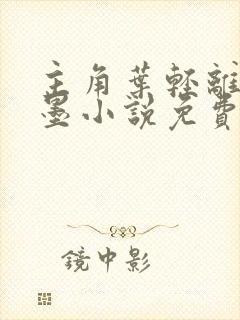 主角葉輕離
墨小說免費
鏡中影